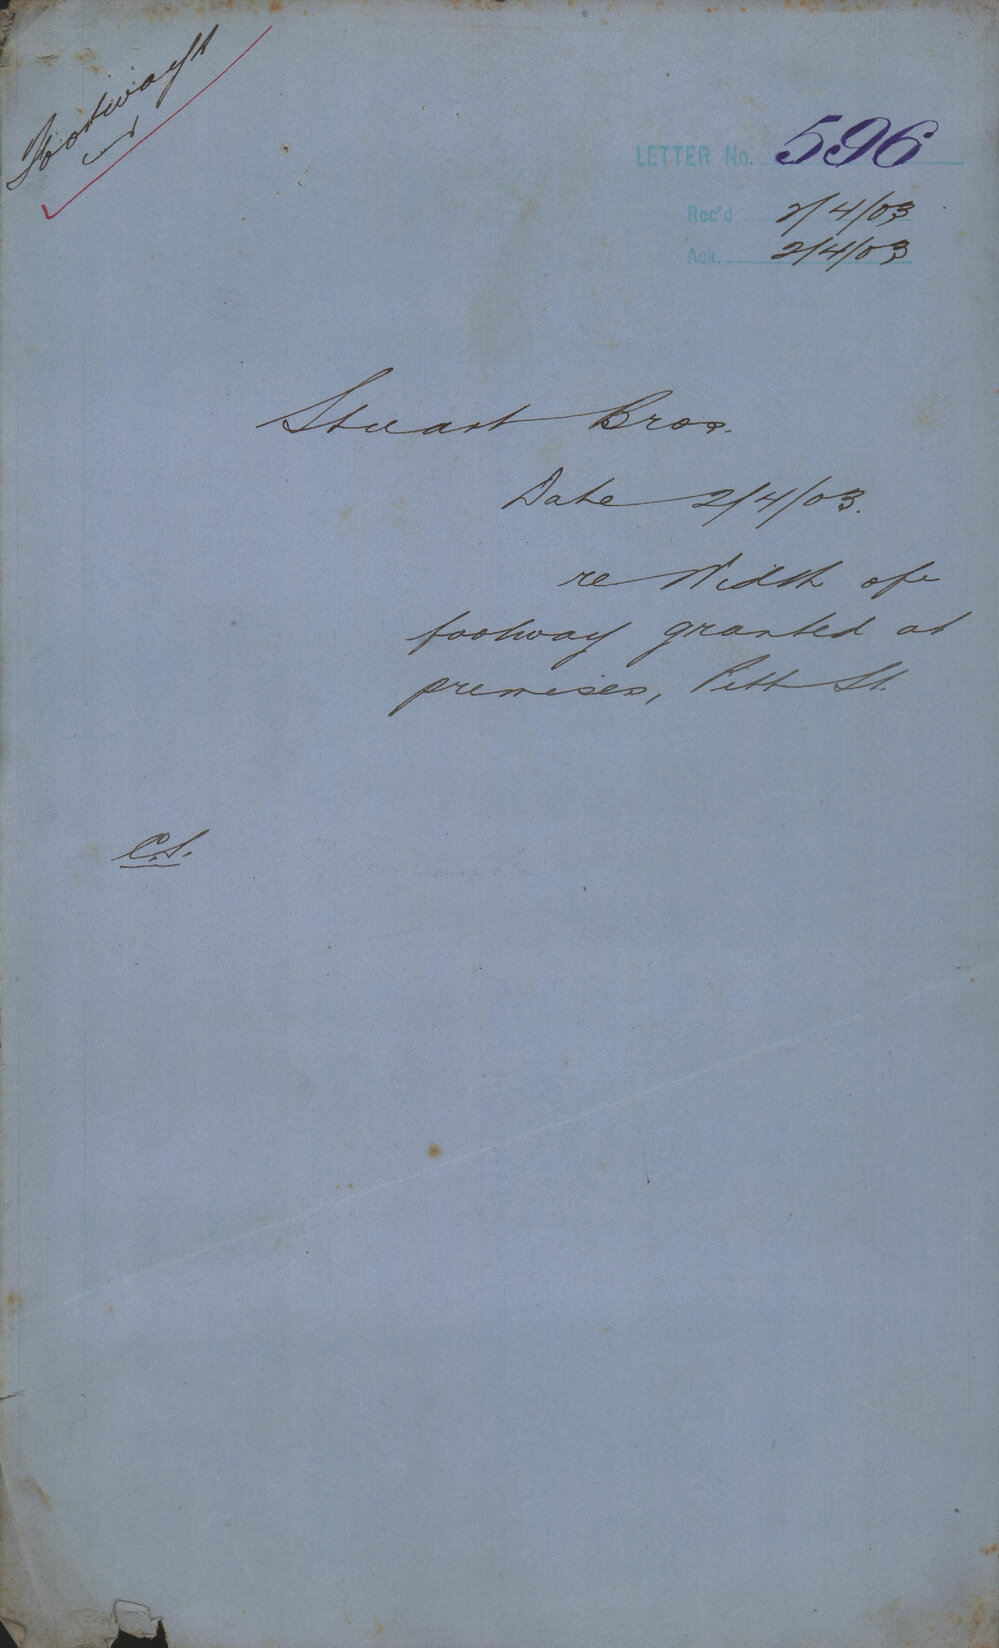 Footways
LETTER No. 596
Rec'd 2/4/03
Ack. 2/4/03
Stuart Bros.
Date 2/4/03.
re Width of
footway granted at
premises, Pitt St.
C.S.